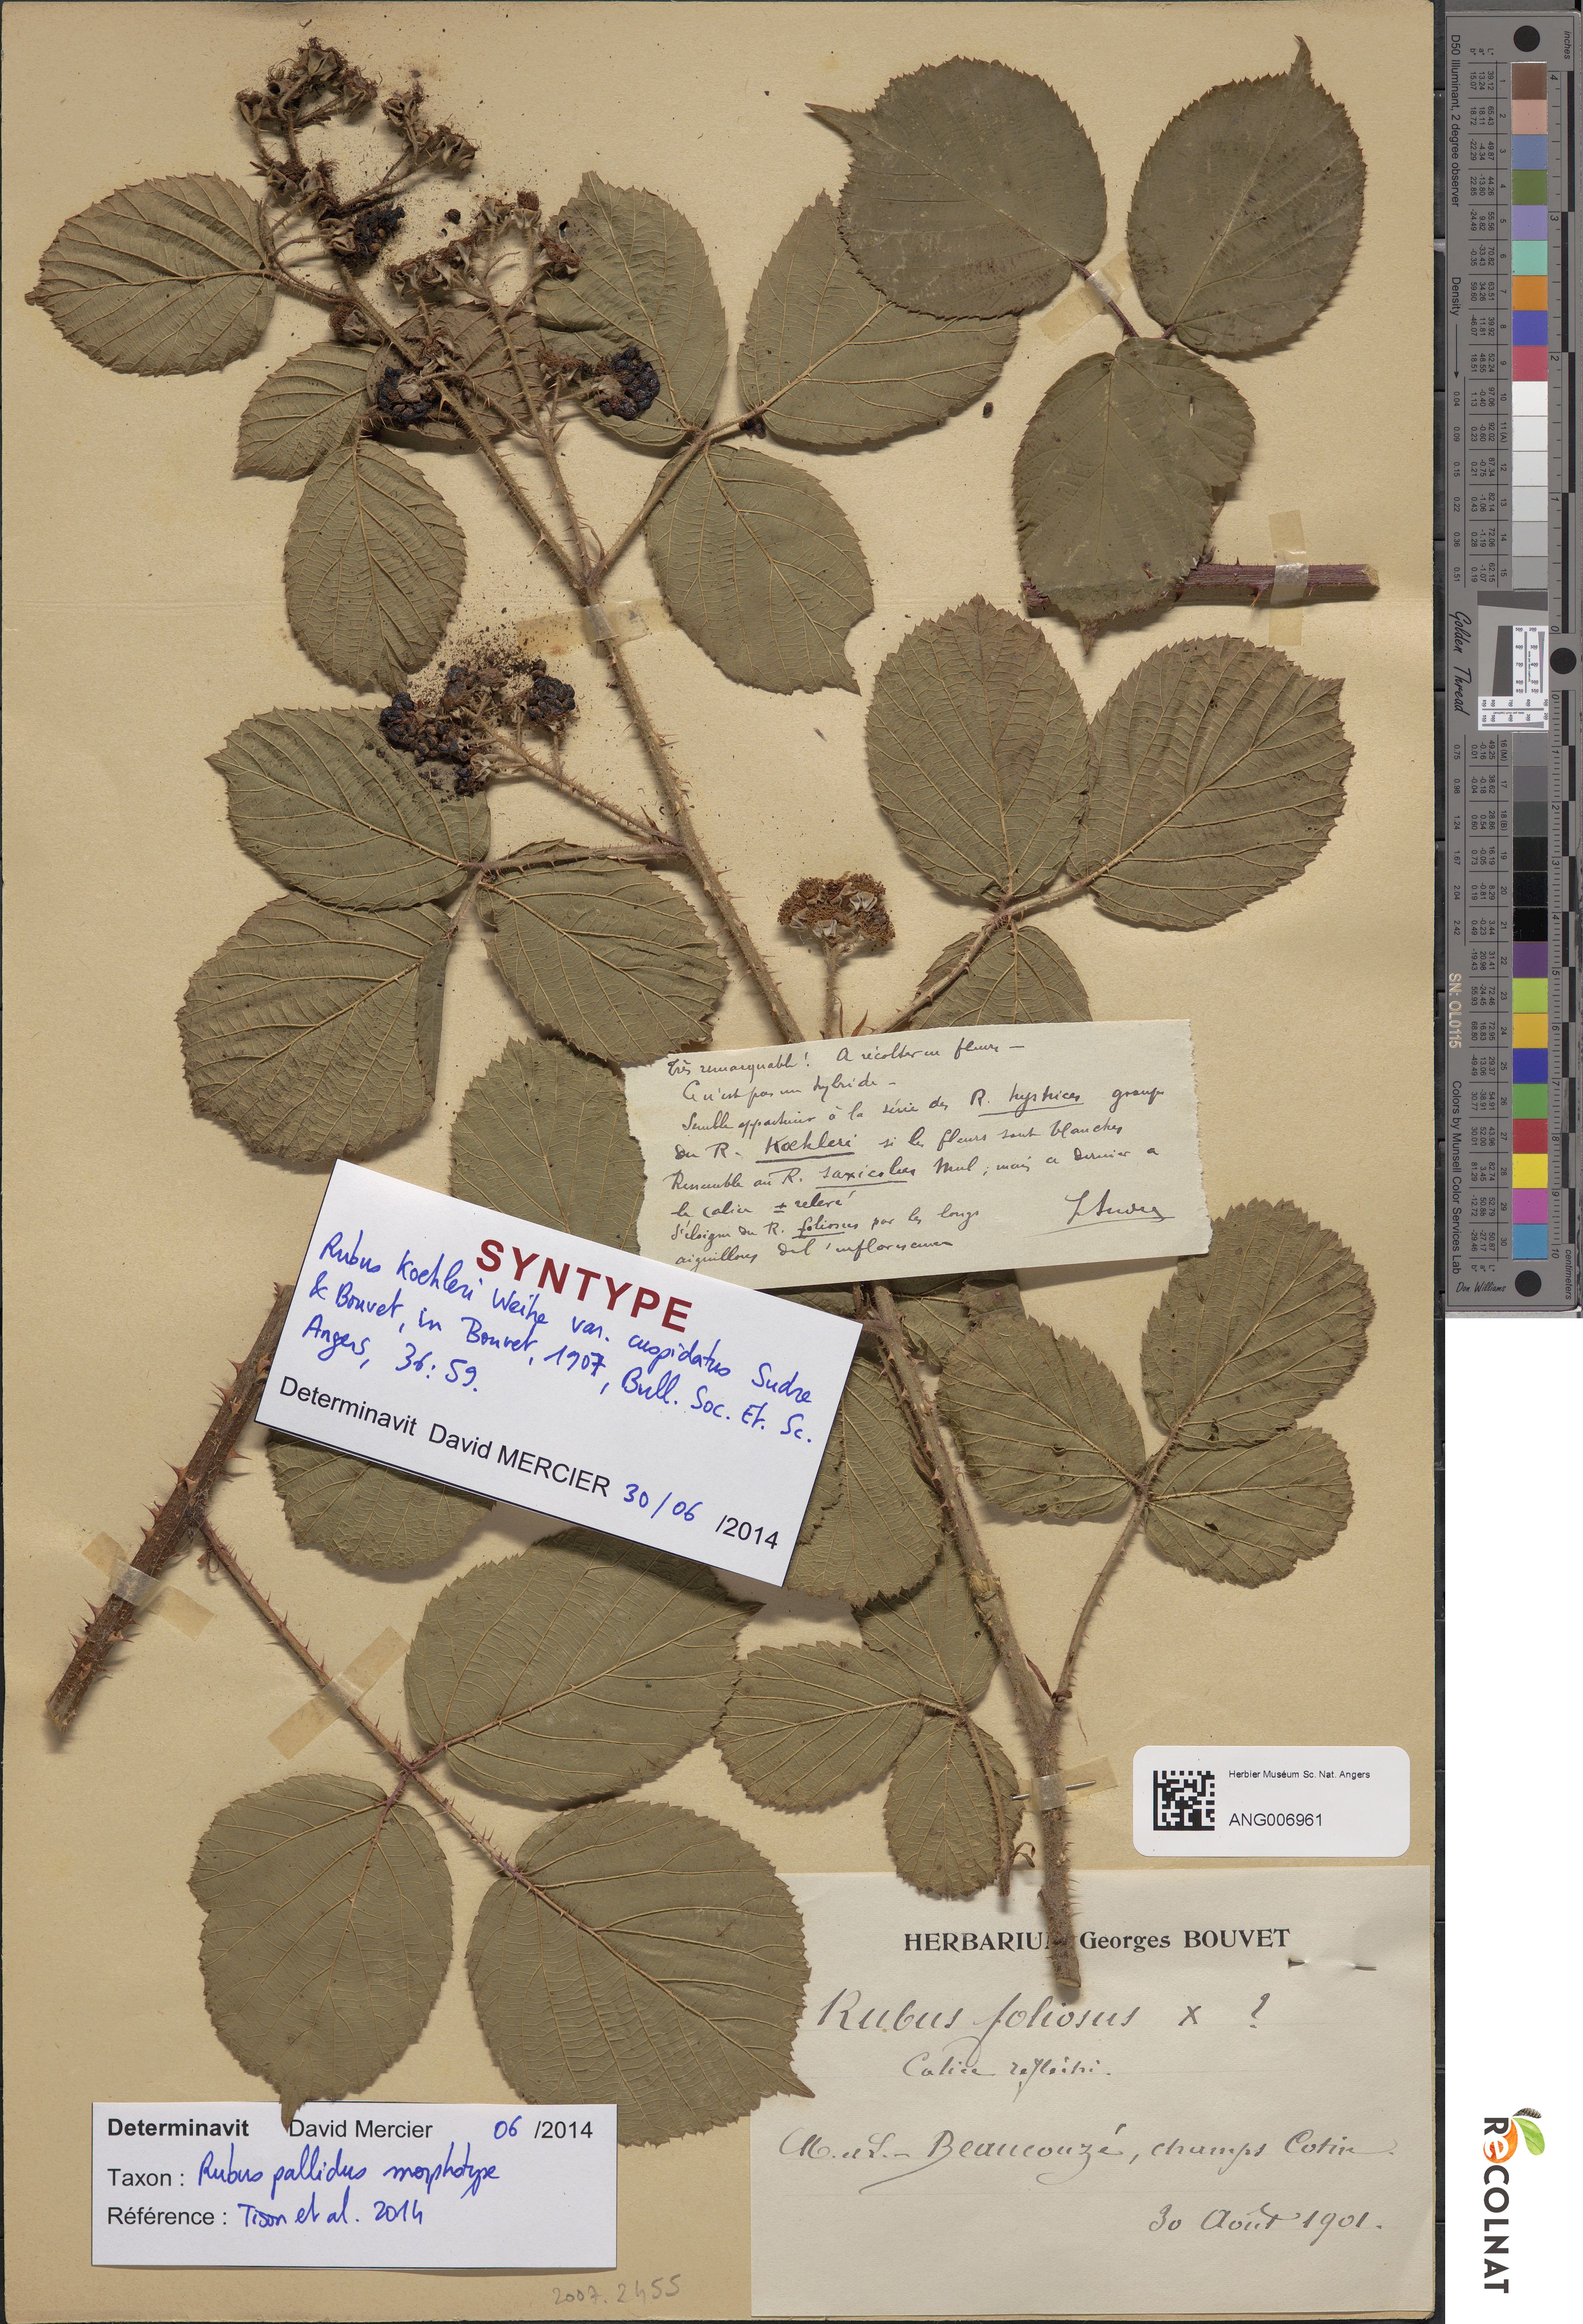 Très remarquable ! A récolter en fleurs —
Ce n'est pas un hybride -
Semble appartenir à la série des R. hystrices groupe
du R. Koehleri si les fleurs sont blanches
Ressemble au R. saxicolus Mul ; mais ce dernier a
le calice ± relevé
S'éloigne du R. foliosus par les longs
aiguillons de l'inflorescence
SYNTYPE
Rubus Koehleri Weihe var. cuspidatus Sudre
& Bouvet, in Bouvet, 1907, Bull. Soc. Et. Sc.
Angers, 36: 59.
Determinavit David MERCIER 30/06 /2014
Herbier Muséum Sc. Nat. Angers
ANG006961
HERBARIUM Georges BOUVET
Rubus foliosus x ?
Calice réfléchi.
M.-et-L. - Beaucouzé, champs Cotin.
30 Août 1901.
Determinavit David Mercier 06 /2014
Taxon : Rubus pallidus morphotype
Référence : Tison et al. 2014
2007.2455
inches
centimeters
D50 Illuminant, 2 degree observer
Density
Golden Thread
SN: OL0115
Colors by Munsell Color Services Lab
Don Williams
RECOLNAT